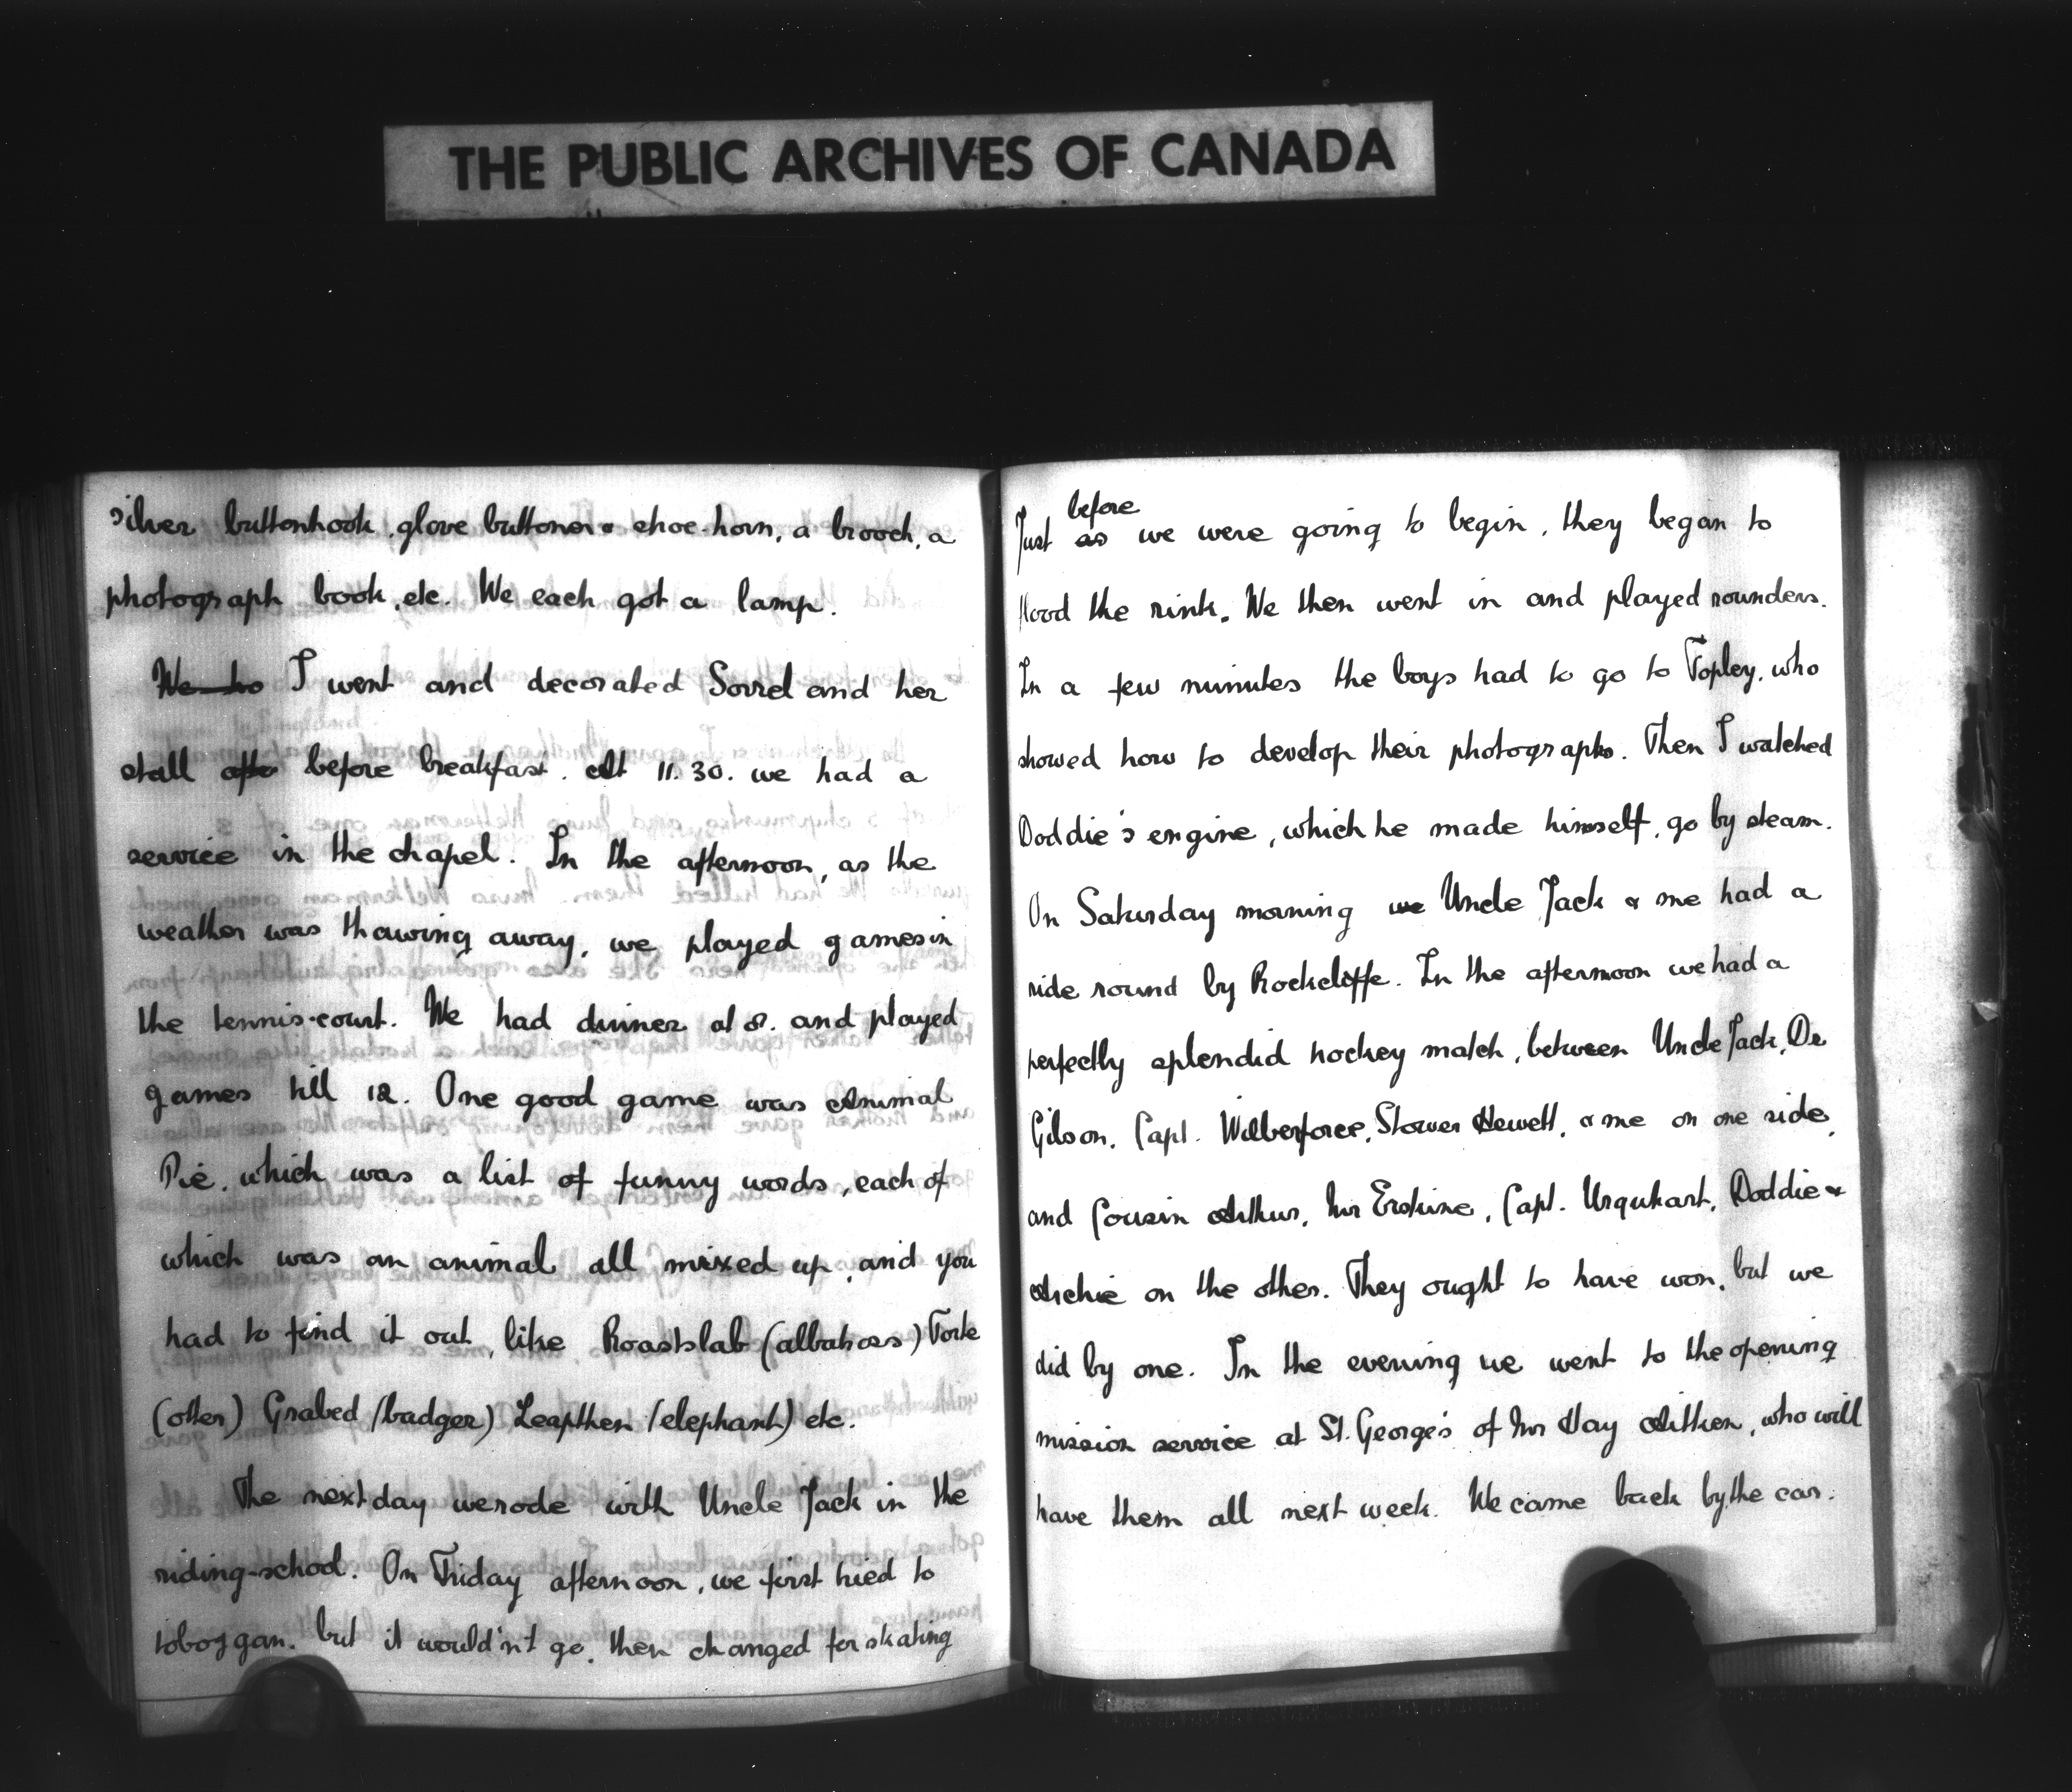 THE PUBLIC ARCHIVES OF CANADA
silver buttonhook, glove buttoner & shoe-horn, a brooch, a
photograph book, etc. We each got a lamp.
We I went and decorated Sorrel and her
stall after before breakfast. At 11.30. we had a
service in the chapel. In the afternoon, as the
weather was thawing away, we played games in
the tennis-court. We had dinner at 8. and played
games till 12. One good game was Animal
Pie, which was a list of funny words, each of
which was an animal all mixed up, and you
had to find it out, like Roastslab (albatross) Torte
(otter) Grabed (badger) Leapthen (elephant) etc.
The next day we rode with Uncle Jack in the
riding-school. On Friday afternoon, we first tried to
toboggan, but it would'nt go, then changed for skating
before
Just as we were going to begin, they began to
flood the rink. We then went in and played rounders.
In a few minutes the boys had to go to Topley, who
showed how to develop their photographs. Then I watched
Doddie's engine, which he made himself, go by steam.
On Saturday morning we Uncle Jack & me had a
ride round by Rockcliffe. In the afternoon we had a
perfectly splendid hockey match, between Uncle Jack, Dr
Gilson, Capt. Wilberforce, Stower Hewett, & me on one side,
and Cousin Arthur, Mr Erskine, Capt. Urquhart, Doddie &
Archie on the other. They ought to have won, but we
did by one. In the evening we went to the opening
mission service at St. George's of Mr Hay Aitken, who will
have them all next week. We came back by the car.